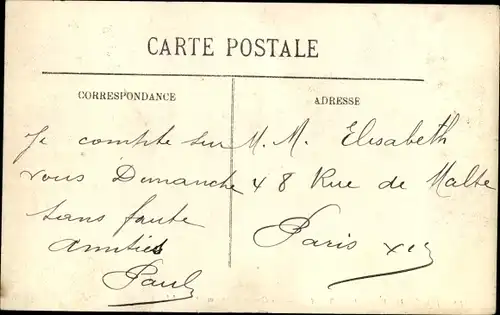 CARTE POSTALE
CORRESPONDANCE
Je compte sur
vous Dimanche
sans faute
Amitiés
Paul
ADRESSE
M. M. Elisabeth
48 Rue de Malte
Paris XIe